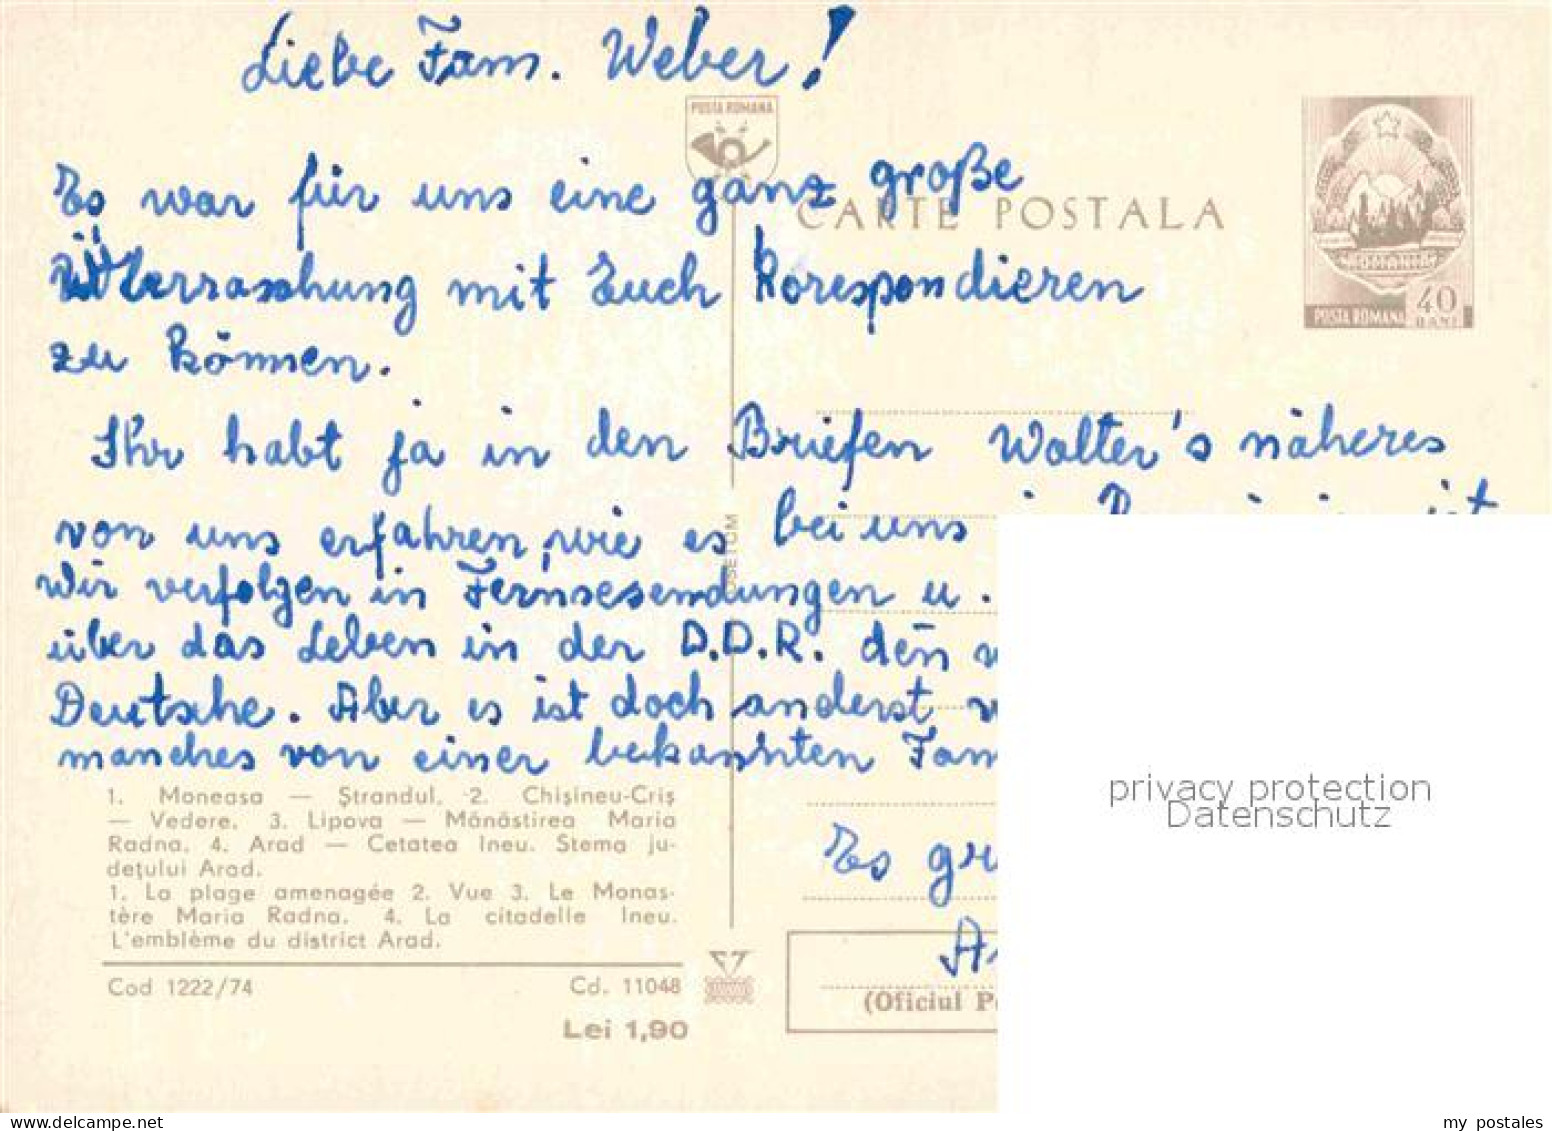 Liebe Fam. Weber!
POSTA ROMANA
Es war für uns eine ganz große
CARTE POSTALA
Überraschung mit Euch korespondieren
zu können.
POSTA ROMANA 40 BANI
Ihr habt ja in den Briefen Walter's näheres
von uns erfahren, wie es bei uns
Wir verfolgen in Fernsesendungen u.
über das Leben in der D.D.R. den
Deutsche. Aber es ist doch anderst
manches von einer bekannten Fam
1. Moneasa — Ștrandul. 2. Chișineu-Criș
— Vedere. 3. Lipova — Mănăstirea Maria
Radna. 4. Arad — Cetatea Ineu. Stema ju-
dețului Arad.
1. La plage amenagée 2. Vue 3. Le Monas-
tère Maria Radna. 4. La citadelle Ineu.
L'emblème du district Arad.
Cod 1222/74 Cd. 11048
Lei 1,90
Es gr
(Oficiul P
privacy protection
Datenschutz
my postales